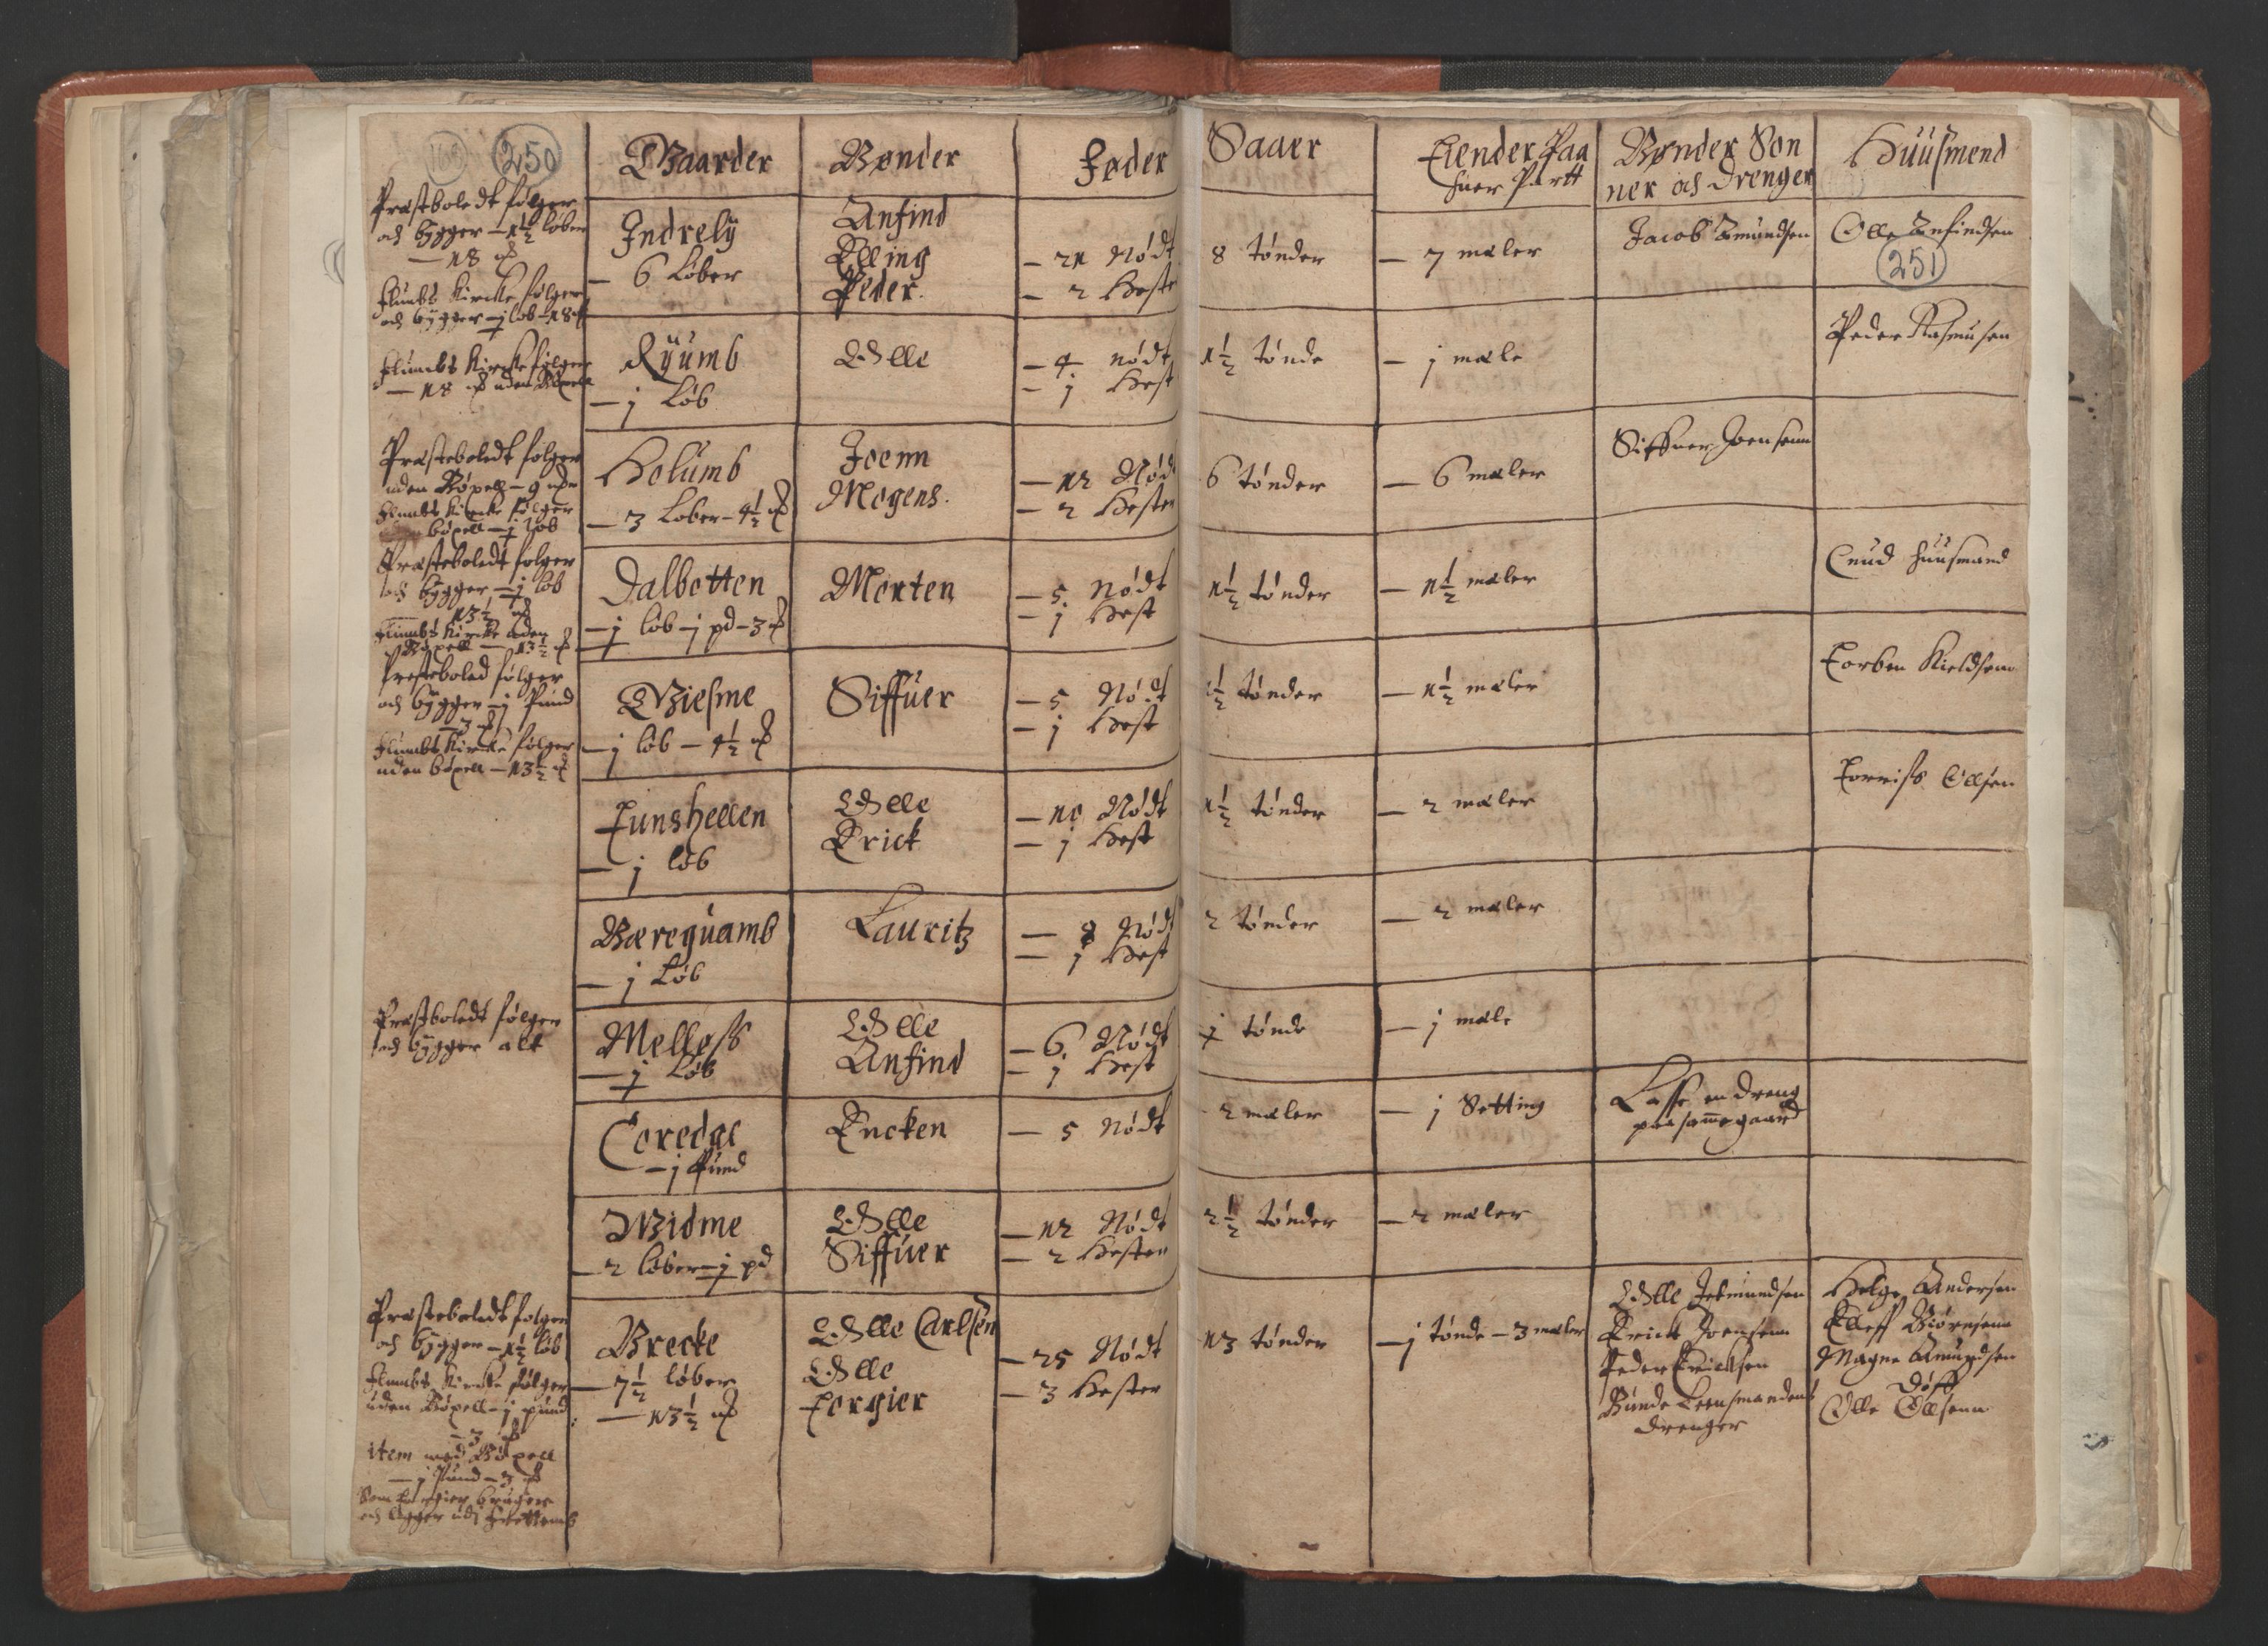 168 250
Gaarder Bønder Føder Saaer Tiender Paa
huer Partt Bønder Søn
ner och Drenger Huusmend
Præstboledt følger
och bygger – 1½ løber
– 18 ꝶ
Flumbs Kircke følger
och bygger – j løb – 18 ꝶ
Indrely
– 6 Løber
Anfind
Elling
Peder
– 21 Nødt
– 2 Heste
8 tønder
– 7 meler
Jacob Amundsen
Olle Anfindsen
251
Flumbs Kircke følger
– 18 ꝶ uden Bøxell
Ryumb
– j Løb
Olle
– 4 nødt
– j Hest
1½ tønde
– j mele
Peder Rasmusen
Præsteboledt følger
uden Bøxell – 9 ꝶ
Flumbs Kircke følger
bøxell – j løb
Holumb
– 3 Løber – 4½ ꝶ
Joenn
Mogens
– 12 Nødt
– 2 Hester
6 tønder
– 6 meler
Siffuer Joensenn
Præsteboledt følger
och bygger – j løb
– 13½ ꝶ
Flumbs Kircke uden
Bøxell – 13½ ꝶ
Dalbotten
– j løb – j pd – 3 ꝶ
Morten
– 5 Nødt
– j Hest
1½ tønder
– 1½ meler
Cnud huusmand
Presteboled følger
och bygger – j Pund
– 3 ꝶ
Flumbs Kircke følger
uden bøxell – 13½ ꝶ
Giesme
– j løb – 4½ ꝶ
Siffuer
– 5 Nødt
– j Hest
½ tønder
– 1½ meler
Torben Kieldsenn
Funshellen
– j løb
Olle
Erick
– 10 Nødt
– j Hest
1½ tønder
– 2 meler
Torriss Ollsen
Bereguamb
– j Løb
Lauritz
– 8 Nødt
– j Hest
2 tønder
– 2 meler
Præstboledt følger
och bygger alt
Melless
– j Løb
Olle
Anfind
– 6 Nødt
– j Hest
j tønde
– j mele
Coredal
– j Pund
Encken
– 5 Nødt
2 meler
– j Setting
Lasse en dreng
paa samme gaard
Widme
– 2 løber – j pd
Olle
Siffuer
– 12 Nødt
– 2 Hester
2½ tønder
– 2 meler
Præsteboledt følger
och bygger – 1½ løb
Flumbs Kircke følger
uden Bøxell – j pund
– 3 ꝶ
item med Bøxell
– j Pund – 3 ꝶ
Som Torgier bruger
och ligger udj
Brecke
– 7½ løber
– 13½ ꝶ
Olle Carlsen
Olle
Torgier
– 25 Nødt
– 3 Hester
13 tønder
– j tønde – 3 meler
Olle Jetmundsen
Erick Joensenn
Peder Ericksen
Gunde Leensmandens
drenger
Helge Andersen
Elleff Biørnsenn
Magne Amundsen
døff
Olle Ollsenn